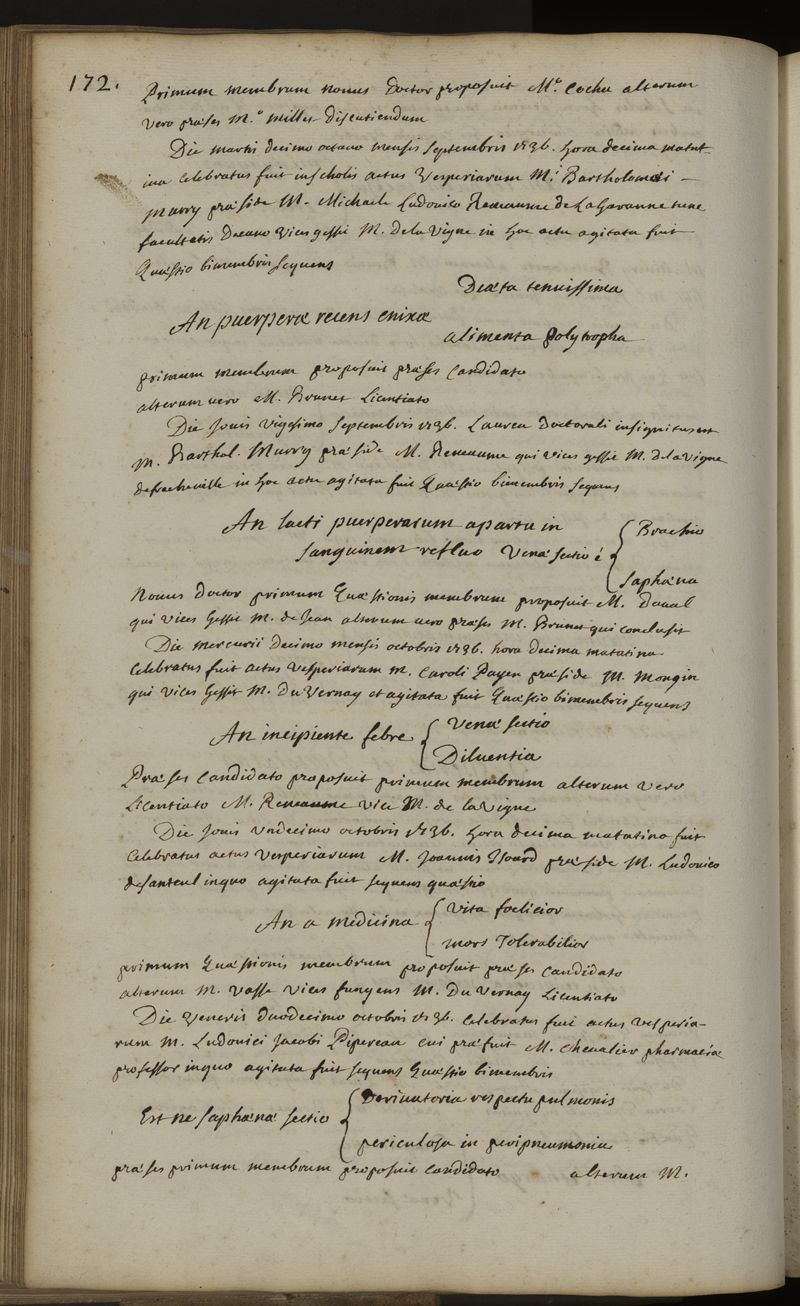 172.
Primum membrum novus doctor proposuit M.o Cochu alterum
vero præses M.o Millet discutiendum
Die martis decimo octavo mensis septembris 1736. hora decima matut-
ina celebratus fuit in scholis actus Vesperiarum M.i Bartholomæi —
Murry præside M. Michaele Ludovico Reneaume de La Garanne tunc
facultatis Decano vices gessit M. de la Vigne in hoc actu agitata fuit
Quæstio bimembris sequens
Diæta tenuissima
An puerperæ recens enixæ
alimenta polytropha
primum membrum proposuit præses Candidato
alterum vero M. Brunet Licentiato
Die Jovis vigesimo septembris 1736. Laurea doctorali insignitus est
M. Barthol. Murry præside M. Reneaume qui vices gessit M. de la Vigne
de frecheville in hoc actu agitata fuit Quæstio bimembris sequens
An lacti puerperarum a partu in
sanguinem refluo Venæ sectio è { Brachio
Saphæna
Novus doctor primum Quæstionis membrum proposuit M. Daval
qui vices gessit M. de Jean alterum vero præses M. Brunet qui conclusit
Die mercurii decimo mensis octobris 1736. hora decima matutina
Celebratus fuit actus vesperiarum M. Caroli Payen præside M. Mongin
qui vices gessit M. Du Vernay et agitata fuit Quæstio bimembris sequens
An incipiente febre { Venæ sectio
Diluentia
Præses Candidato proposuit primum membrum alterum vero
Licentiato M. Reneaume vice M. de la Vigne
Die Jovis undecimo octobris 1736. hora decima matutina fuit
Celebratus actus vesperiarum M. Joannis Isoard præside M. Ludovico
de Santeul in quo agitata fuit sequens quæstio
An a medicina { Vita foelicior
mors Tolerabilior
primum Quæstionis membrum proposuit præses Candidato
alterum M. Vasse vices fungens M. Du Vernay Licentiato
Die Veneris duodecimo octobris 1736. Celebratus fuit actus vesperia-
rum M. Ludovici Jacobi Pipereau cui præfuit M. Chevalier pharmaciæ
professor in quo agitata fuit sequens Quæstio bimembris
Est ne saphænæ sectio { Derivatoria respectu pulmonis
periculosa in peripneumonia
præses primum membrum proposuit Candidato alterum M.